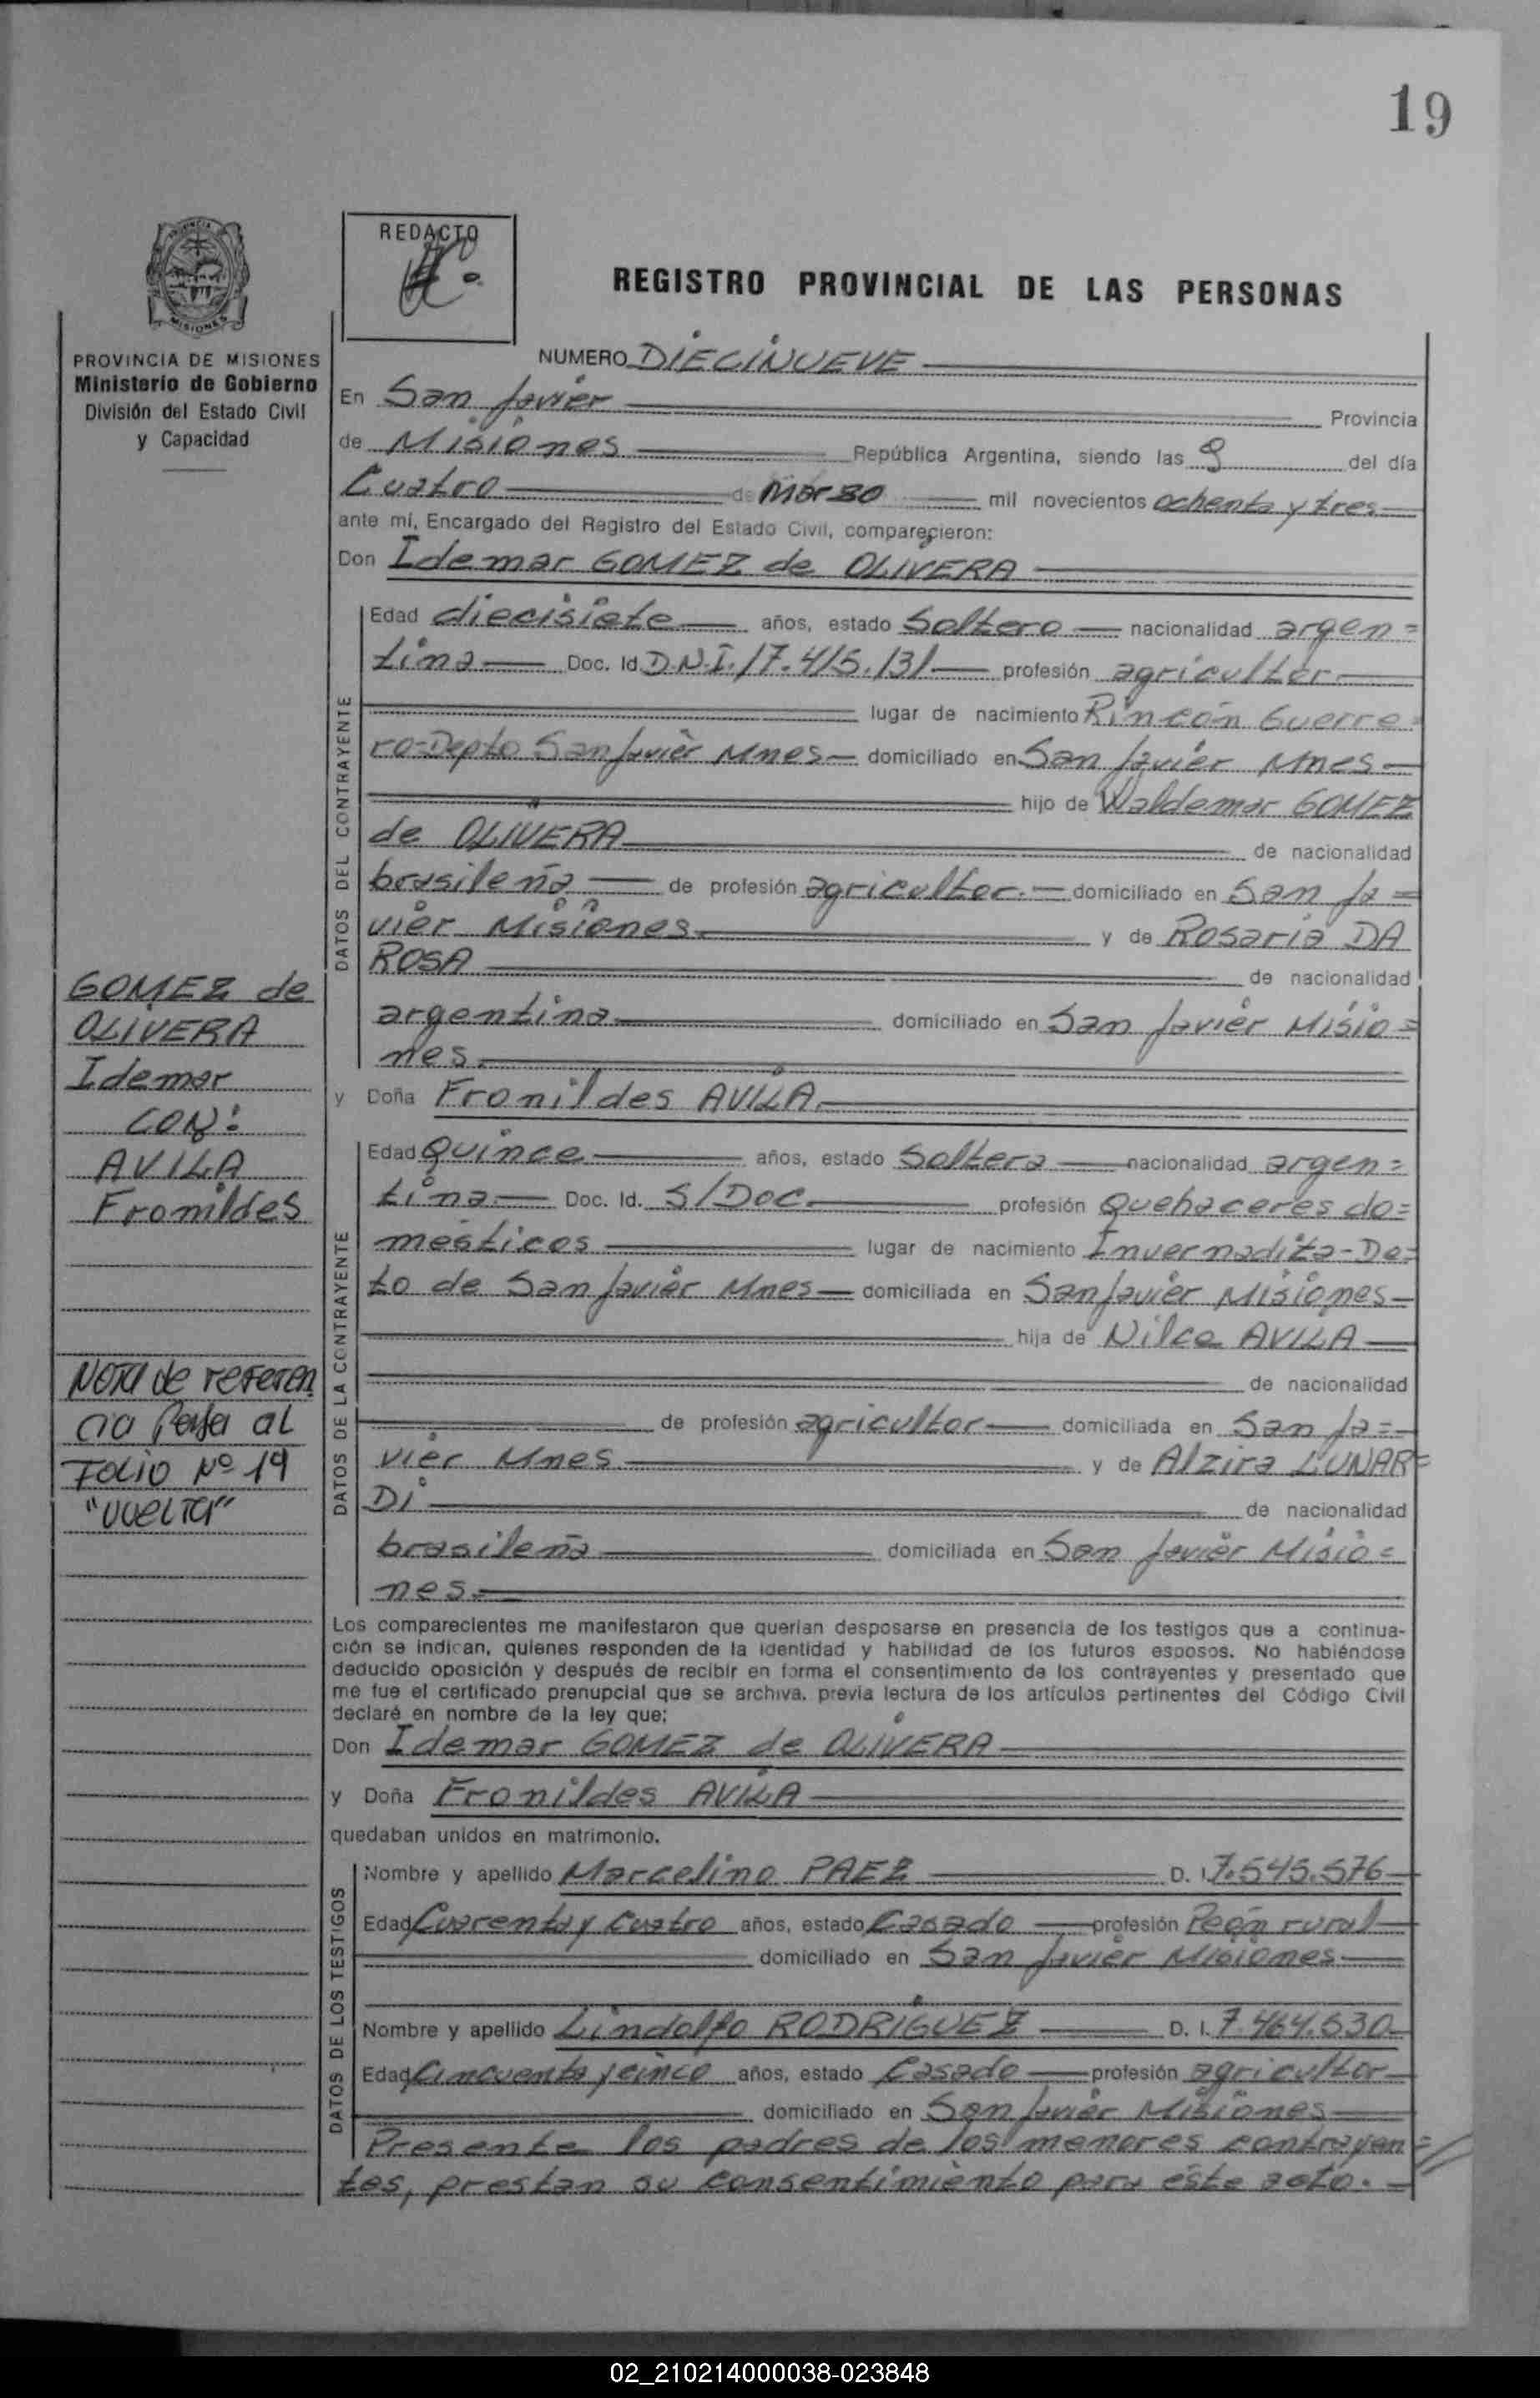 19
PROVINCIA
MISIONES
REDACTO
REGISTRO PROVINCIAL DE LAS PERSONAS
PROVINCIA DE MISIONES
Ministerio de Gobierno
División del Estado Civil
y Capacidad
NUMERO DIECINUEVE
En San Javier Provincia
de Misiones República Argentina, siendo las 9 del día
Cuatro de Marzo mil novecientos ochenta y tres
ante mí, Encargado del Registro del Estado Civil, comparecieron:
Don Idemar GOMEZ de OLIVERA
DATOS DEL CONTRAYENTE
Edad diecisiete años, estado Soltero nacionalidad argen=
tina Doc. Id. D.N.I. 17.415.131 profesión agricultor
lugar de nacimiento Rincón Guerre=
ro-Depto San Javier Mnes domiciliado en San Javier Mnes
hijo de Waldemar GOMEZ
de OLIVERA de nacionalidad
brasileña de profesión agricultor. domiciliado en San Ja=
vier Misiones y de Rosaria DA
ROSA de nacionalidad
argentina domiciliado en San Javier Misio=
nes.
y Doña Fronildes AVILA.
DATOS DE LA CONTRAYENTE
Edad Quince años, estado Soltera nacionalidad argen=
tina Doc. Id. S/Doc. profesión Quehaceres do=
mésticos lugar de nacimiento Invernadita-De=
to de San Javier Mnes domiciliada en San Javier Misiones
hija de Nilce AVILA
de nacionalidad
de profesión agricultor domiciliada en San Ja=
vier Mnes y de Alzira LUNAR=
DI de nacionalidad
brasileña domiciliada en San Javier Misio=
nes.
Los comparecientes me manifestaron que querían desposarse en presencia de los testigos que a continua-
ción se indican, quienes responden de la identidad y habilidad de los futuros esposos. No habiéndose
deducido oposición y después de recibir en forma el consentimiento de los contrayentes y presentado que
me fue el certificado prenupcial que se archiva, previa lectura de los artículos pertinentes del Código Civil
declaré en nombre de la ley que:
Don Idemar GOMEZ de OLIVERA
y Doña Fronildes AVILA
quedaban unidos en matrimonio.
DATOS DE LOS TESTIGOS
Nombre y apellido Marcelino PAEZ D. I. 7.545.576
Edad Cuarenta y Cuatro años, estado Casado profesión Peón rural
domiciliado en San Javier Misiones
Nombre y apellido Lindolfo RODRIGUEZ D. I. 7.464.530
Edad Cincuenta y cinco años, estado Casado profesión agricultor
domiciliado en San Javier Misiones
Presente los padres de los menores contrayen=
tes, prestan su consentimiento para éste acto.
GOMEZ de
OLIVERA
Idemar
CON:
AVILA
Fronildes
NOTA de referen
cia Pasa al
Folio Nº 19
"Vuelta"
02_210214000038-023848